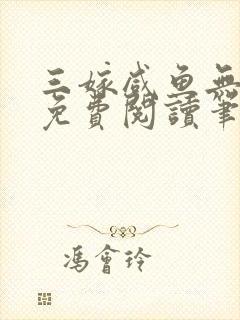 三嫁咸魚無
免費閱讀筆
馮會玲